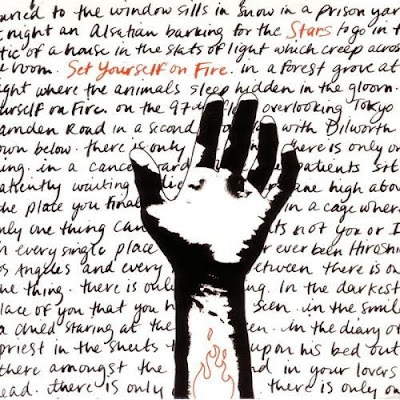 buried to the window sills in snow in a prison yar
t night an Alsatian barking for the Stars to go in t
tic of a house in the slats of light which creep across
he room. Set Yourself on Fire. in a forest grove at
ight where the animals sleep hidden in the gloom.
urself on Fire. on the 97th fl overlooking Tokyo
amden Road in a second with Dilworth
own below. there is only here is only on
ing. in a cance ard patients sit
atiently waiting ane high abov
the place you final in a cage where
nly one thing can ts not you or I
n every single place r ever been Hirosh
os Angeles and every etween there is on
ne thing. there is only ng. in the darkest
lace of you that you h seen. in the smile
a child staring at the en. in the diary of
priest in the sheets t upon his bed out
there amongst the nd in your lovers
ead. there is only there is only on